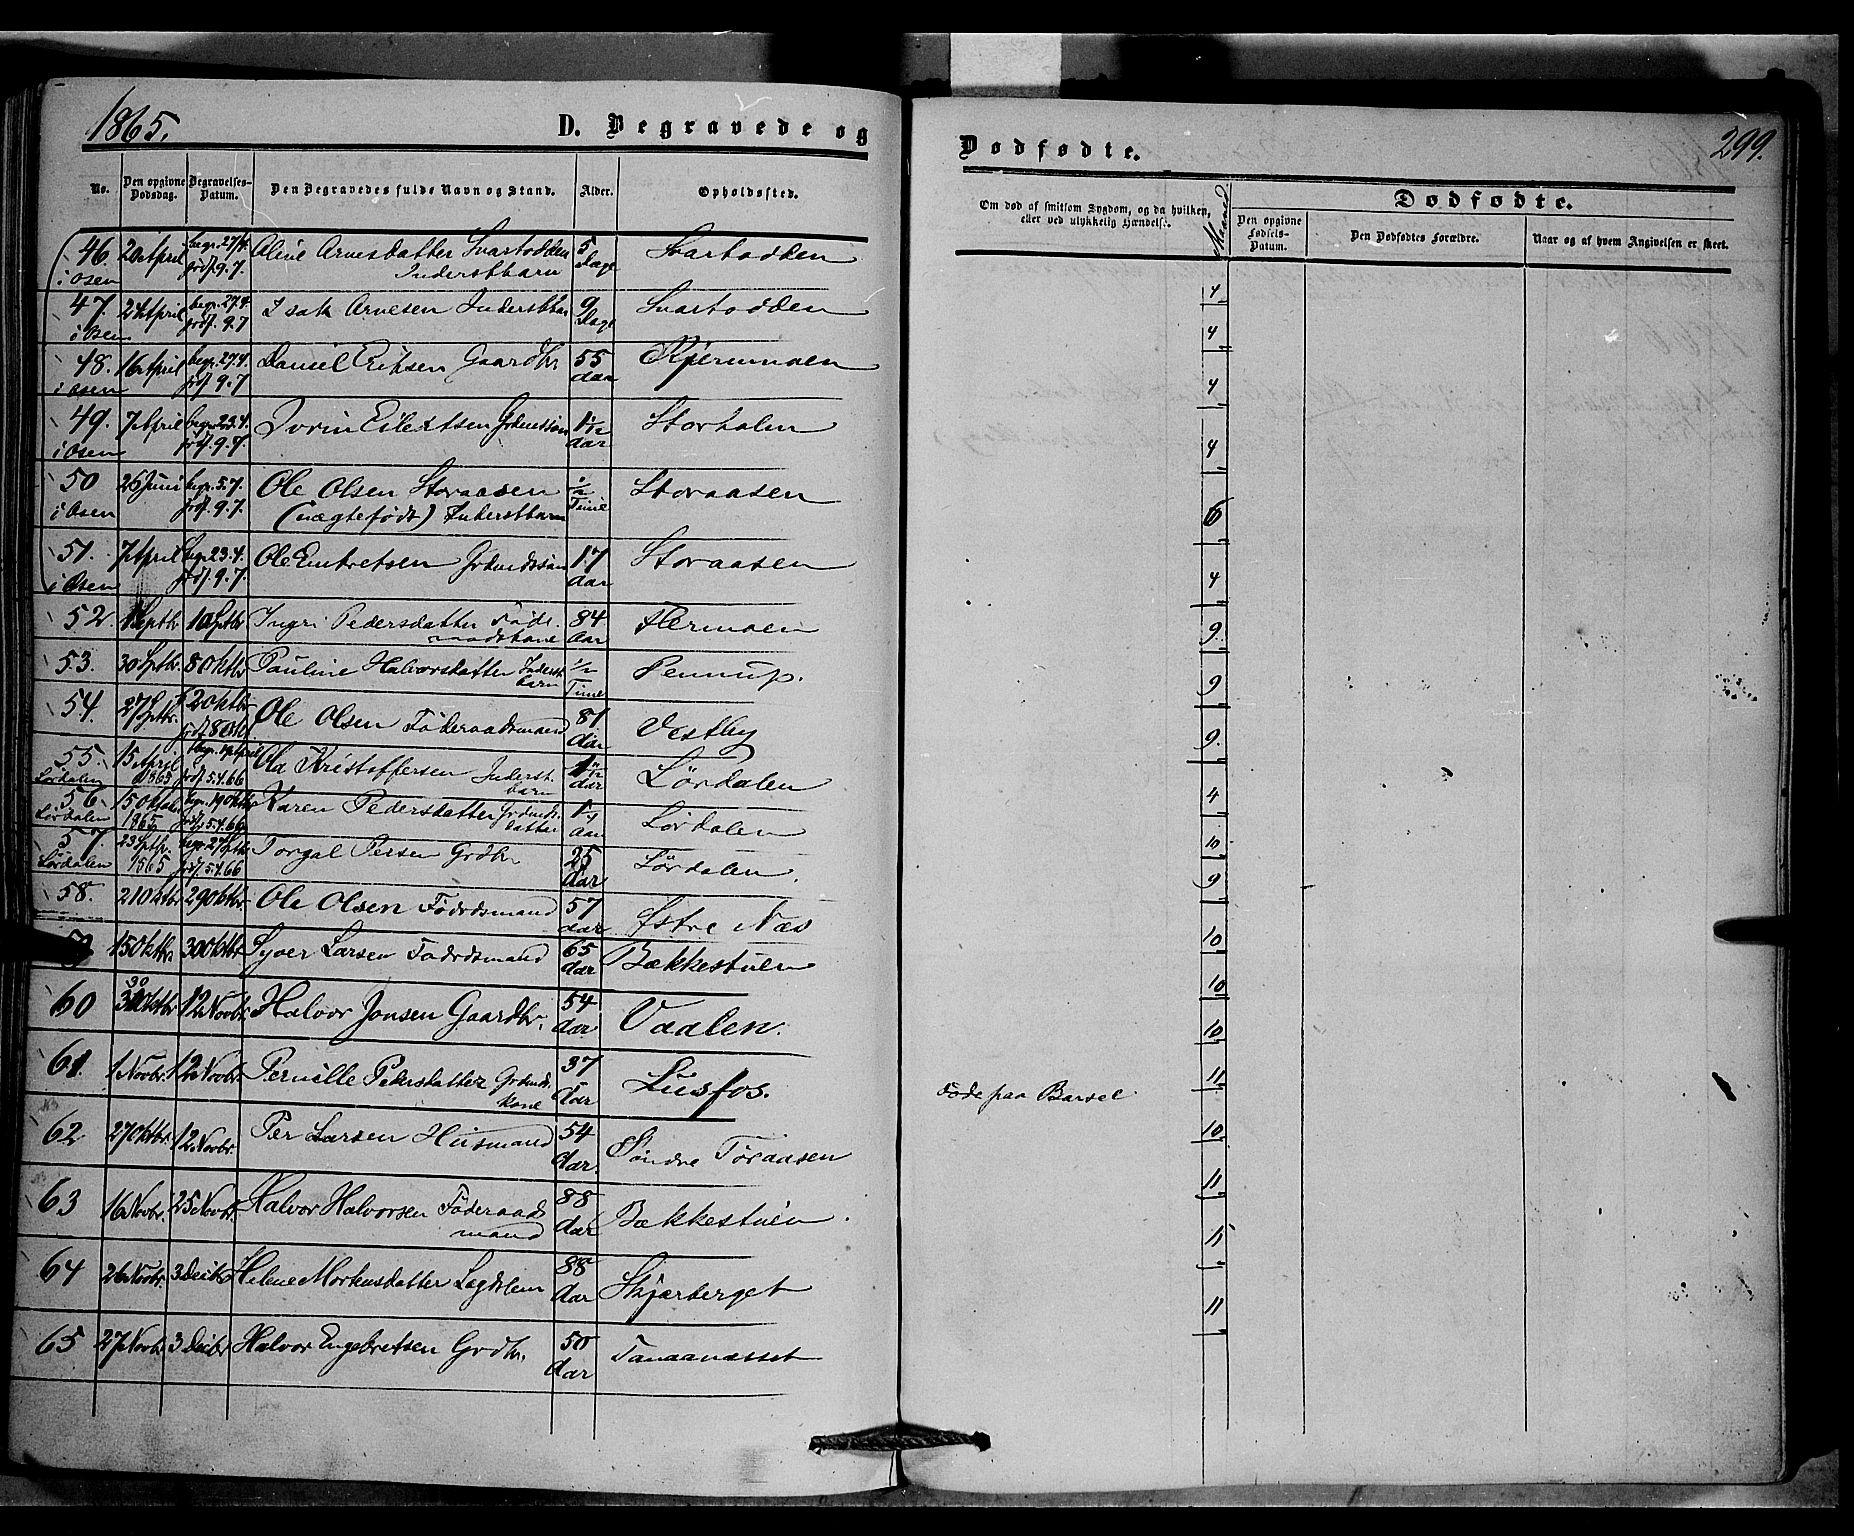 1865.
D. Begravede og
No.
Den opgivne Dødsdag.
Begravelses-Datum.
Den Begravedes fulde Navn og Stand.
Alder.
Opholdssted.
46. i Osen 20 April begr. 27/4. jordf. 9.7. Oline Arnesdatter Svartodden Inderstbarn 5 Dage Svartodden
47. i Osen April begr. 27.4 jordf. 9.7 Isak Arnesen Inderstbar 9 Dage Svartodden
48. i Osen 16 April begr. 27.4 jordf. 9.7 Daniel Eriksen Gaardbr 55 Aar Kjernmoen
49. i Osen 7 April begr. 23.4. jordf. 9.7. Eilertsen Grdmdssøn Aar Storhalen
50 i Osen 26 Juni begr. 5.7. jordf. 9.7. Ole Olsen Storaasen (uægtefødt) Inderstbarn 1/2 Time Storaasen
51. i Osen 7 April begr. 23.4. jordf. 9.7. Ole Embretsen Grdmdssøn 17 Aar Storaasen
52. 1 Septbr 10 Septbr Ingri Pedersdatter Føderaadskone 84 Aar Hermoen
53. 30 Septbr. 8 Oktbr Pauline Halvorsdatter Inderstbarn 1/2 Time Sennup.
54. 27 Septbr. 2 Oktbr jordf 8 Oktbr Ole Olsen Føderaadsmand 81 Aar Vestby
55. Lørdalen 15 April 1865 begr. April jordf. 5.4.66 Ole Kristoffersen Inderstbarn Aar Lørdalen
56 Lørdalen 15 Oktober 1865 begr. 19 Oktbr jordf. 5.4.66 Karen Pedersdatter Grdmdsdatter Aar Lørdalen
57. Lørdalen 23 Septbr. 1865 begr 27 Septbr jordf. 5.4.66 Torgal Persen Grdbr 25 Aar Lørdalen.
58. 21 Oktbr 29 Oktbr. Ole Olsen Fødrdsmand 57 Aar Østre Næs
59 15 Oktbr 30 Oktbr Syver Larsen Fødrdsmand 65 Aar Bækkestuen
60 30 Oktbr 12 Novbr Halvor Jonsen Gaardbr. 54 Aar Vaalen.
61. 1 Novbr. 12 Novbr. Pernille Pedersdatter Grdmdskone 37 Aar Lusfos.
62 27 Oktbr. 12 Novbr. Per Larsen Husmand 54 Aar. Søndre Tøraasen
63 16 Novbr. 25 Novbr. Halvor Halvorsen Føderaadsmand 88 Aar Bækkestuen.
64 26 Novbr. 3 Decbr Helene Mortensdatter Lægdslem 88 Aar Skjærberget
65 27 Novbr 3 Decbr Halvor Engebretsen Grdbr. 50 Aar Tanaanæsset
Dødfødte.
299.
Om død af smitsom Sygdom, og da hvilken,
eller ved ulykkelig Hændelse.
Maaned
Dødfødte.
Den opgivne Fødsels-Datum.
Den Dødfødtes Forældre.
Naar og af hvem Angivelsen er skeet.
4
4
4
4
6
4
9.
9
9.
4
10
9
10
10
10
Døde paa Barsel 11
10
11
11
11